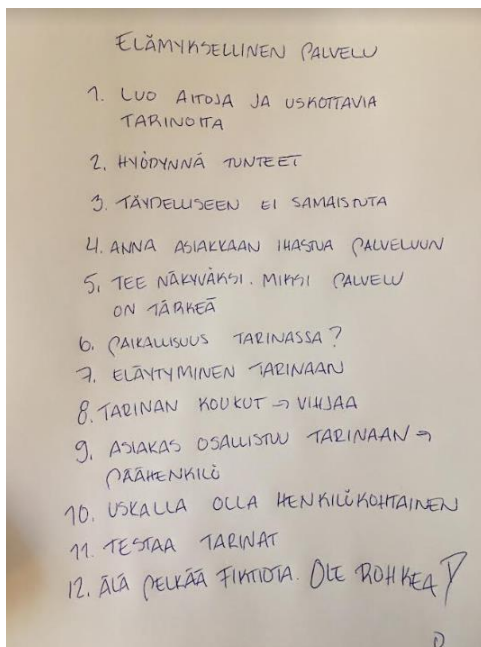 ELÄMYKSELLINEN PALVELU
1. LUO AITOJA JA USKOTTAVIA
TARINOITA
2. HYÖDYNNÄ TUNTEET
3. TÄYDELLISEEN EI SAMAISTUTA
4. ANNA ASIAKKAAN IHASTUA PALVELUUN
5. TEE NÄKYVÄKSI. MIKSI PALVELU
ON TÄRKEÄ
6. PAIKALLISUUS TARINASSA?
7. ELÄYTYMINEN TARINAAN
8. TARINAN KOUKUT → VIHJAA
9. ASIAKAS OSALLISTUU TARINAAN →
PÄÄHENKILÖ
10. USKALLA OLLA HENKILÖKOHTAINEN
11. TESTAA TARINAT
12. ÄLÄ PELKÄÄ FIKTIOTA. OLE ROHKEA!